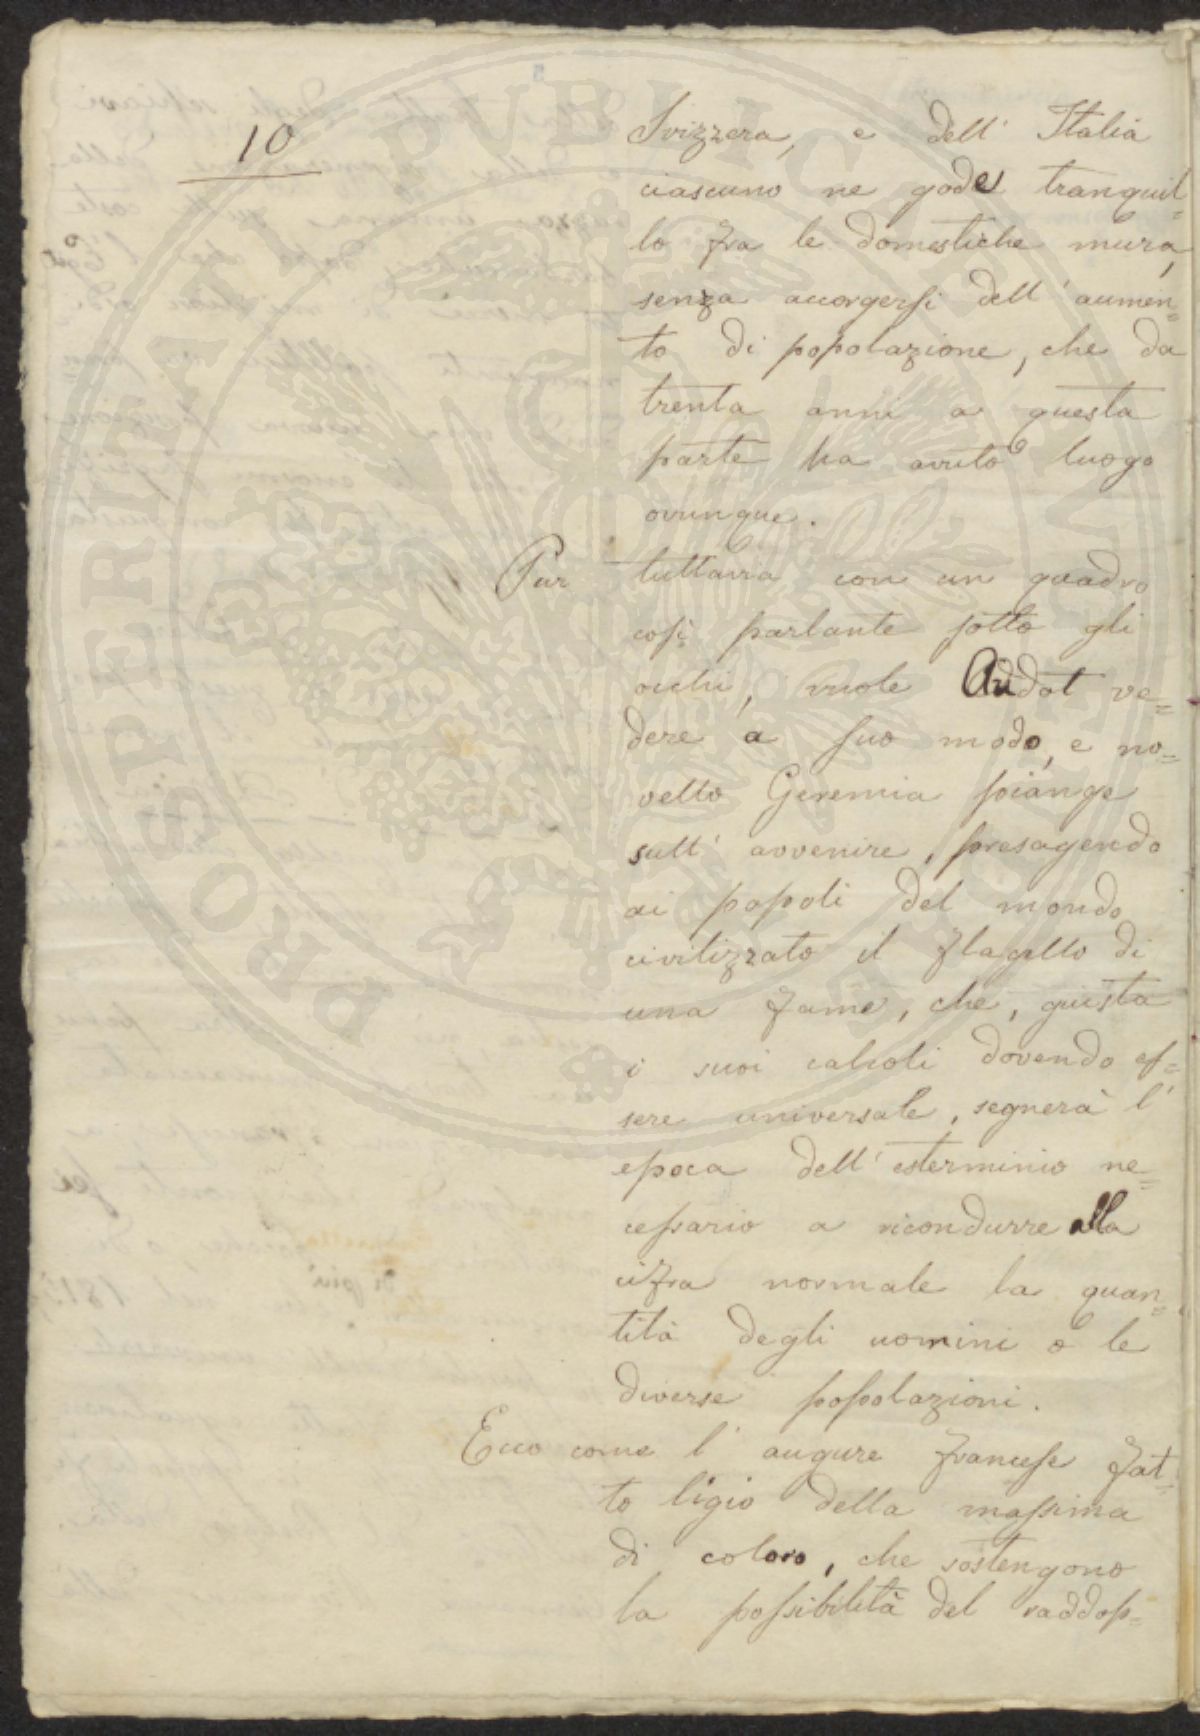 10
Svizzera, e dell' Italia
ciascuno ne gode tranquil=
lo fra le domestiche mura,
senza accorgersi dell' aumen=
to di popolazione, che da
trenta anni a questa
parte ha avuto luogo
ovunque.
Pur tuttavia con un quadro
così parlante sotto gli
occhi, vuole Audot ve=
dere a suo modo, e no=
vello Geremia piange
sull' avvenire, presagendo
ai popoli del mondo
civilizzato il flagello di
una fame, che, giusta
i suoi calcoli dovendo es=
sere universale, segnerà l'
epoca dell' esterminio ne=
cessario a ricondurre alla
cifra normale la quan=
tità degli uomini o le
diverse popolazioni.
Ecco come l' augure francese fat=
to ligio della massima
di coloro, che sostengono
la possibilità del raddop=
PROSPERITATI PUBLICAE